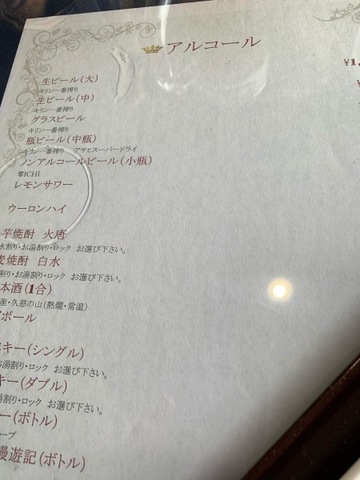 アルコール
¥1,
生ビール(大)
キリン一番搾り
生ビール(中)
キリン一番搾り
グラスビール
キリン一番搾り
瓶ビール(中瓶)
キリン一番搾り アサヒスーパードライ
ノンアルコールビール(小瓶)
零ICHI
レモンサワー
ウーロンハイ
芋焼酎 火唐
水割り・お湯割り・ロック お選び下さい。
麦焼酎 白水
割り・お湯割り・ロック お選び下さい。
本酒(1合)
産・久慈の山(熱燗・常温)
ボール
キー(シングル)
お湯割り・ロック お選び下さい。
キー(ダブル)
湯割り・ロック お選び下さい。
ー(ボトル)
ープ
漫遊記(ボトル)